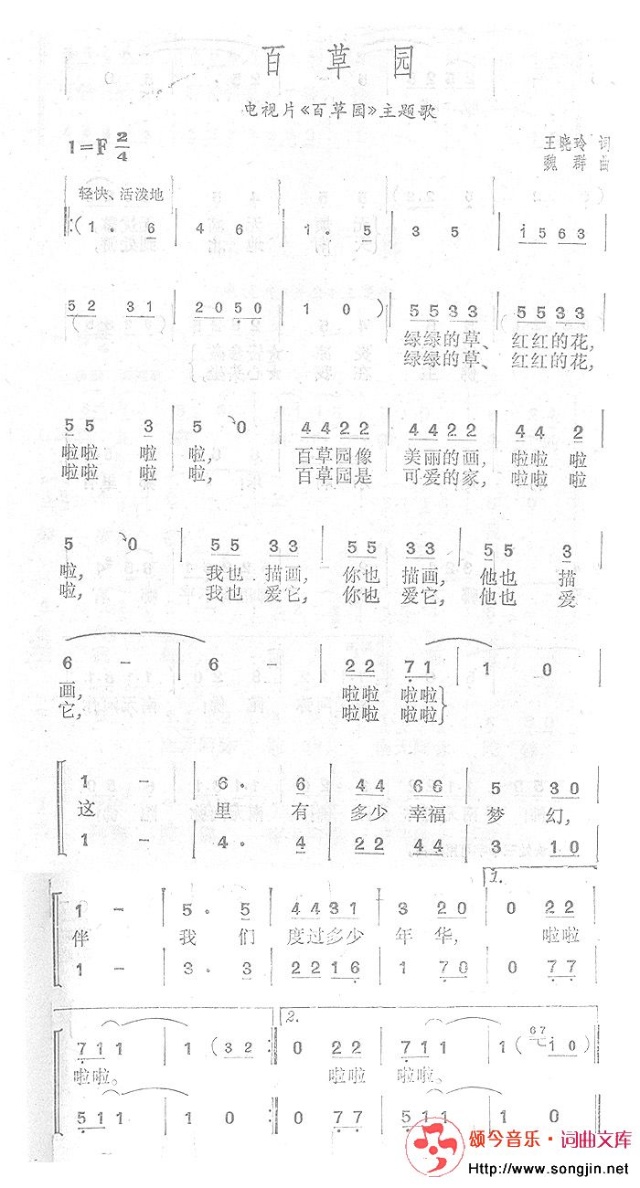 百草园
电视片《百草园》主题歌
1=F 2/4
王晓玲 词
魏群 曲
轻快、活泼地
‖:(1. 6 | 4 6 | i. 5 | 3 5 | i 5 6 3 |
5 2 3 1 | 2 0 5 0 | 1 0 ) | 5 5 3 3 | 5 5 3 3 |
绿绿的草、红红的花,
绿绿的草、红红的花,
5 5 3 | 5 0 | 4 4 2 2 | 4 4 2 2 | 4 4 2 |
啦啦 啦 啦, 百草园像 美丽的画, 啦啦 啦
啦啦 啦 啦, 百草园是 可爱的家, 啦啦 啦
5 0 | 5 5 3 3 | 5 5 3 3 | 5 5 3 |
啦, 我也 描画, 你也 描画, 他也 描
啦, 我也 爱它, 你也 爱它, 他也 爱
6 - | 6 - | 2 2 7 1 | 1 0 |
画, 啦啦 啦啦
它, 啦啦 啦啦
1 - | 6. 6 | 4 4 6 6 | 5 3 0 |
这 里 有 多少 幸福 梦 幻,
1 - | 4. 4 | 2 2 4 4 | 3 1 0 |
1.
1 - | 5. 5 | 4 4 3 1 | 3 2 0 | 0 2 2 |
伴 我 们 度过多少 年 华, 啦啦
1 - | 3. 3 | 2 2 1 6 | 1 7 0 | 0 7 7 |
2.
7 1 1 | 1 ( 3 2 :‖ 0 2 2 | 7 1 1 | 1 ( 67 i 0 ) ‖
啦啦。 啦啦 啦啦。
5 1 1 | 1 0 :‖ 0 7 7 | 5 1 1 | 1 0 ‖
颂今音乐·词曲文库
Http://www.songjin.net